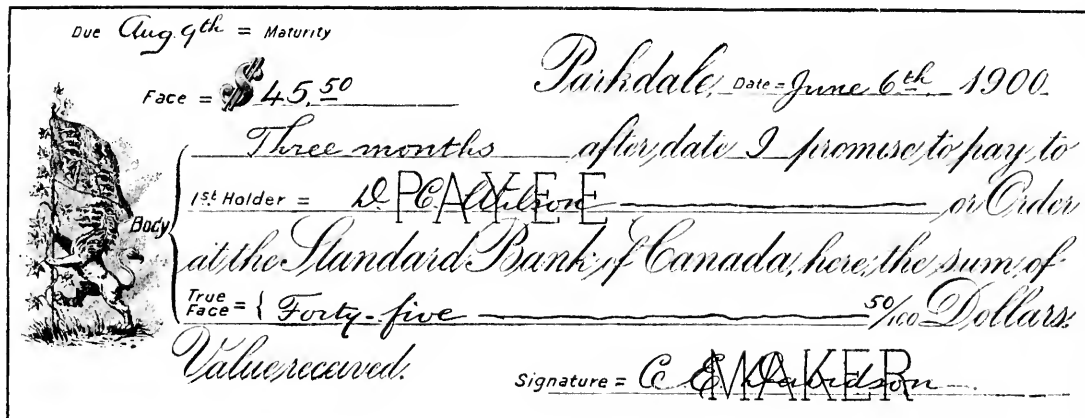 Due Aug. 9th = Maturity
Face = $45.50
Parkdale, Date = June 6th 1900
Three months after date I promise to pay to
1st Holder = D. C. Wilson PAYEE or Order
Body
at the Standard Bank of Canada, here, the sum of
True Face = { Forty-five 50/100 Dollars.
Value received.
Signature = C. E. Davidson MAKER